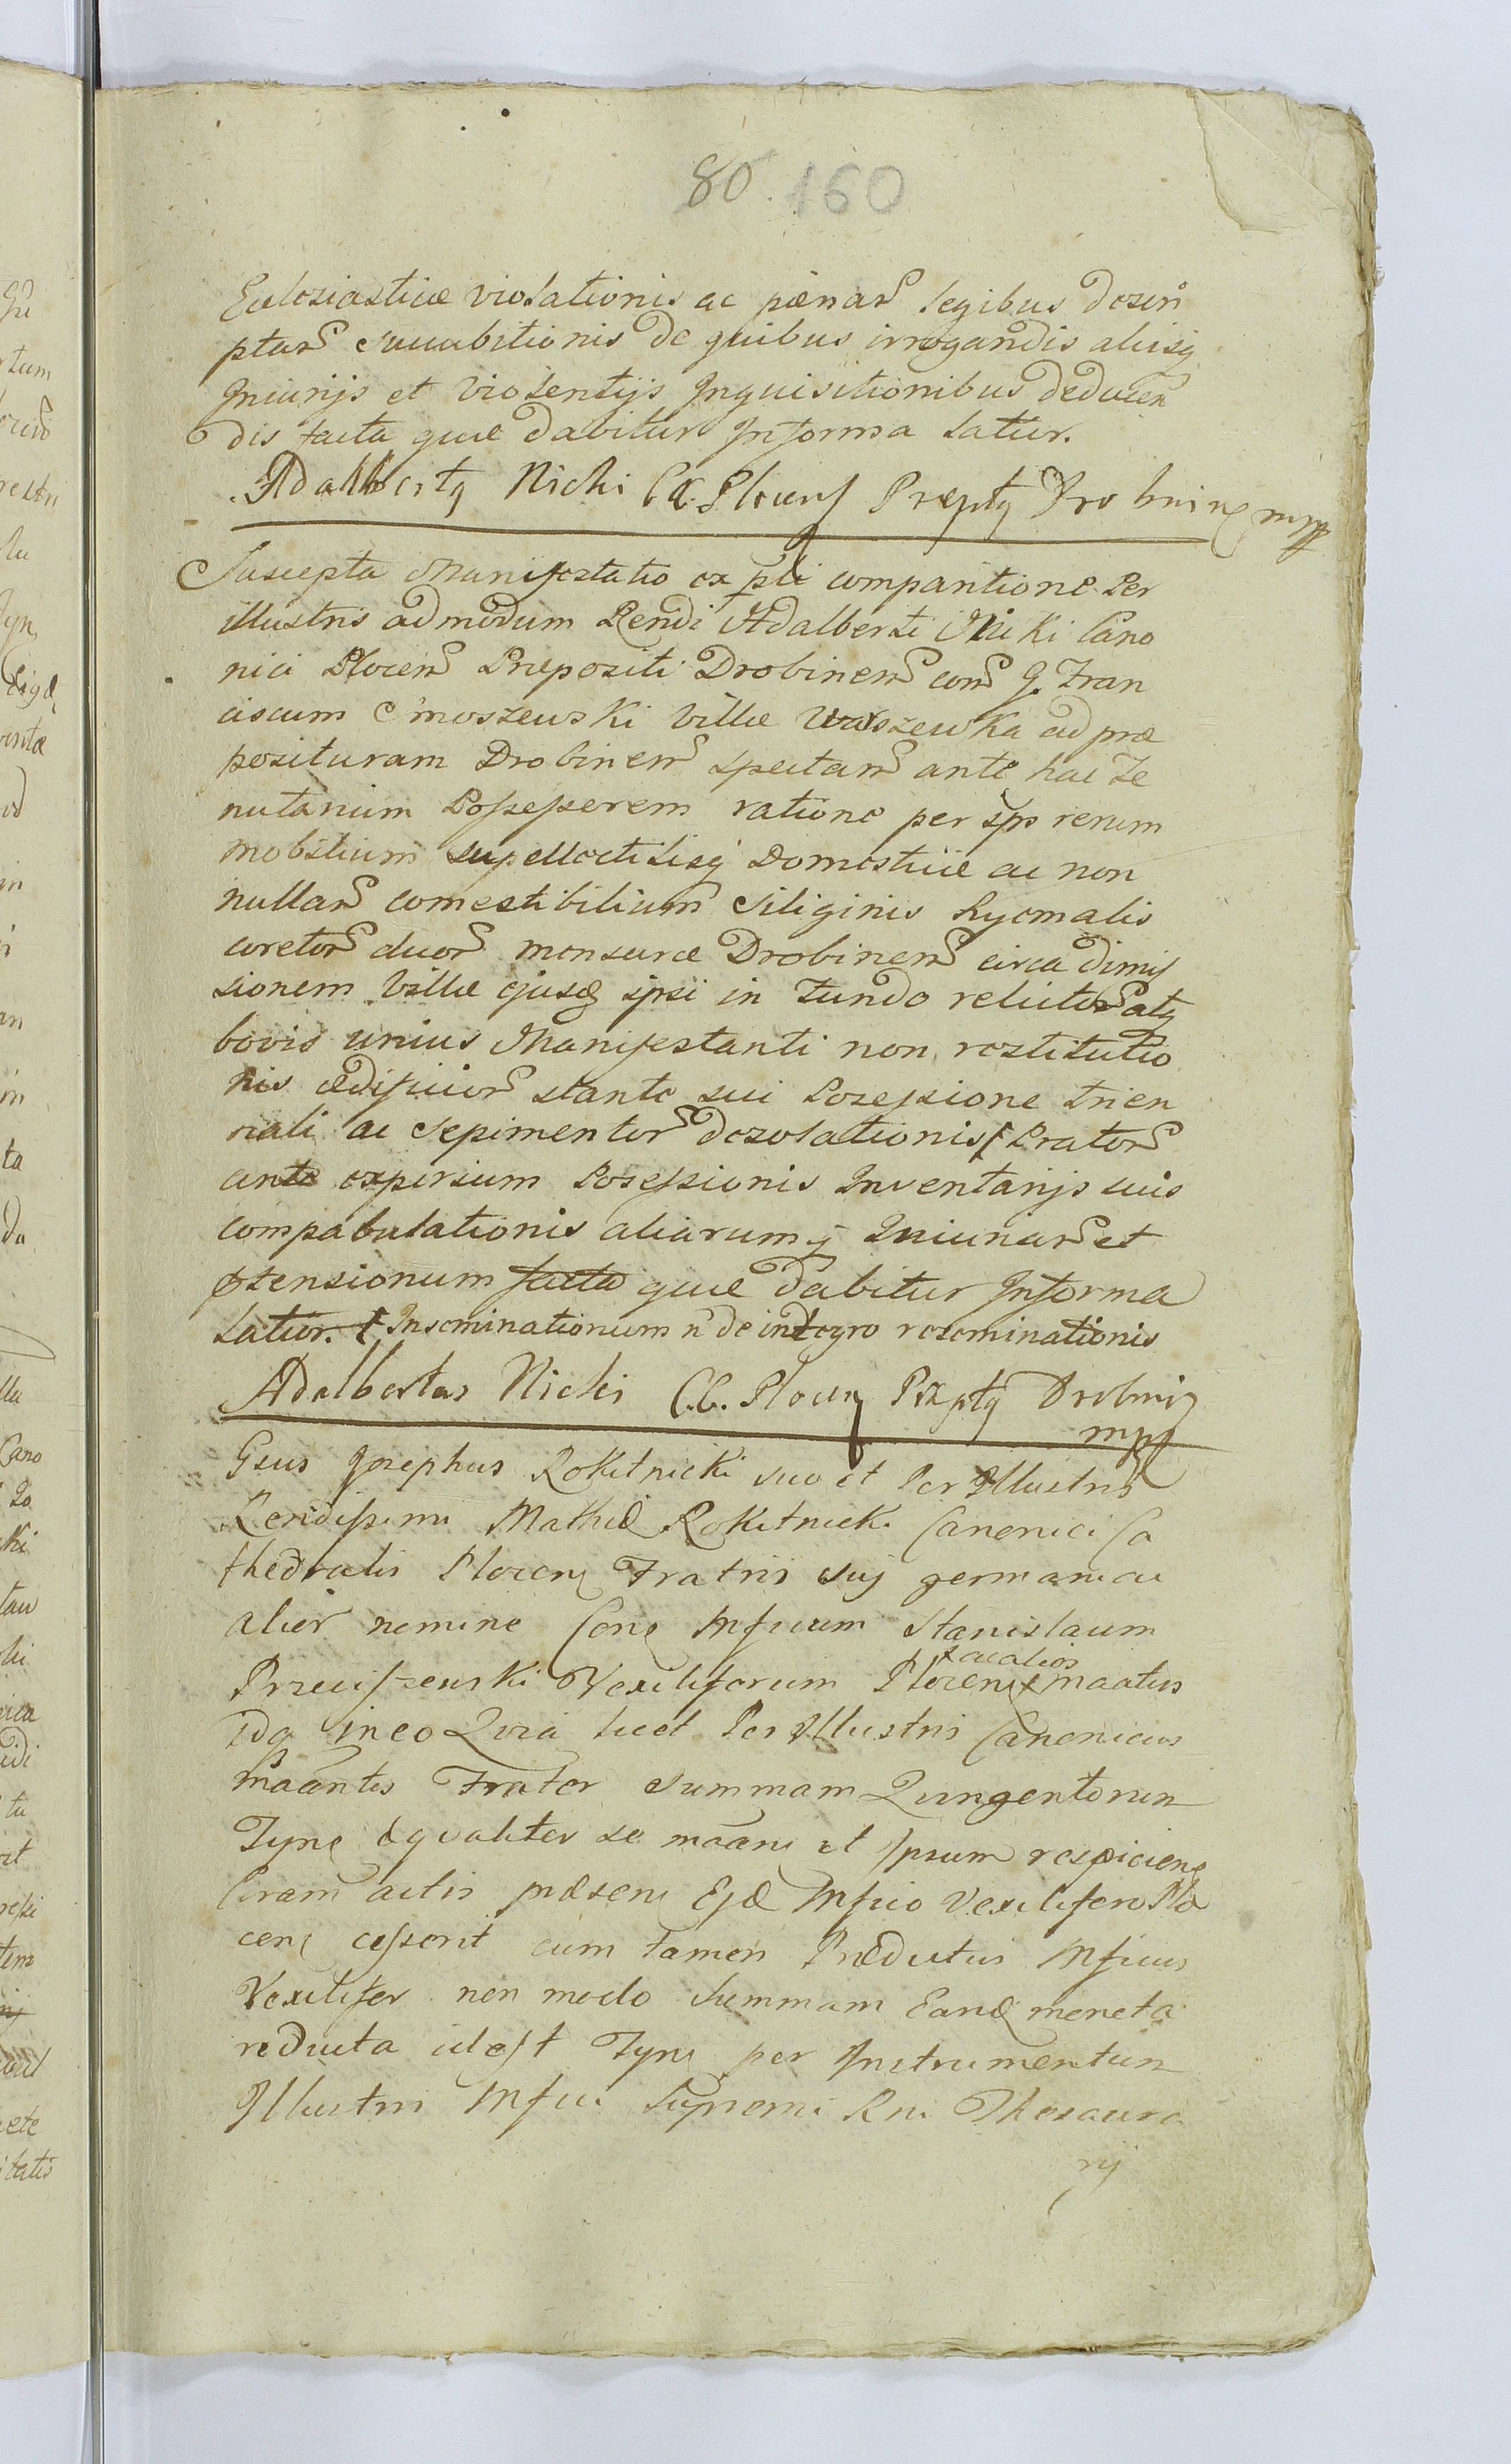 80. 160
Eclesiasticæ violationis ac pænar legibus descri
ptar succubitionis de quibus irrogandis alijsq
Injurijs et violentijs Inquisitionibus deducen
dis facta quæ dabitur Informa latius.
Adalbertq Nicki CC. Plocens Præptq Drobninς mpp
Suscepta Manifestatio ex pti comparitione Per
illustris admodum Rendi Adalberti Nicki Cano
nici Plocens Præpositi Drobinens cons G. Fran
ciscum Cmoszewski Villæ Warszewka ad præ
posituram Drobinens spectans ante hac Te
nutarium Possessorem ratione per ips rerum
mobilium supellectilisq Domesticæ ac non
nullar comestibilium Siliginis hyemalis
coretor duor mensuræ Drobinens circa dimis
sionem Villæ ejusd ipsi in fundo relictor atq
bovis unius Manifestanti non restitutio
nis ædificior stante sui Posessione trien
nali ac Sepimentor desolationis Prator
ante expirium Posessionis Inventarijs suis
compabulationis aliarumq Iniuriar et
ptensionum facta quæ dabitur Informa
latior. Inseminationum n de integro reseminationis
Adalbertus Nicki C.C. Plocens Præptq Drobnin
mpp
Gsus Josephus Rokitnicki suo et Per Illustris
Rendissimi Mathiæ Rokitnicki Canonici Ca
thedralis Plocens Fratris sui germani ac
alior nomine Cons Mficum Stanislaum
Przeciszewski Vexiliferum Plocens maatus
zacatios
idq ineo Quia licet Per Illustris Canonicus
maantis Frater summam Quingentorum
Tynf æqualiter se maans et Ipsum respiciens
Coram actis præsens Ejd Mfico Vexilifero Plo
cens cesserit cum tamen Prædictus Mficus
Vexilifer non modo summam Eand moneta
reducta idest Tynf per Instrumentum
Illustris Mfici Supremi Rni Thesaura
rij